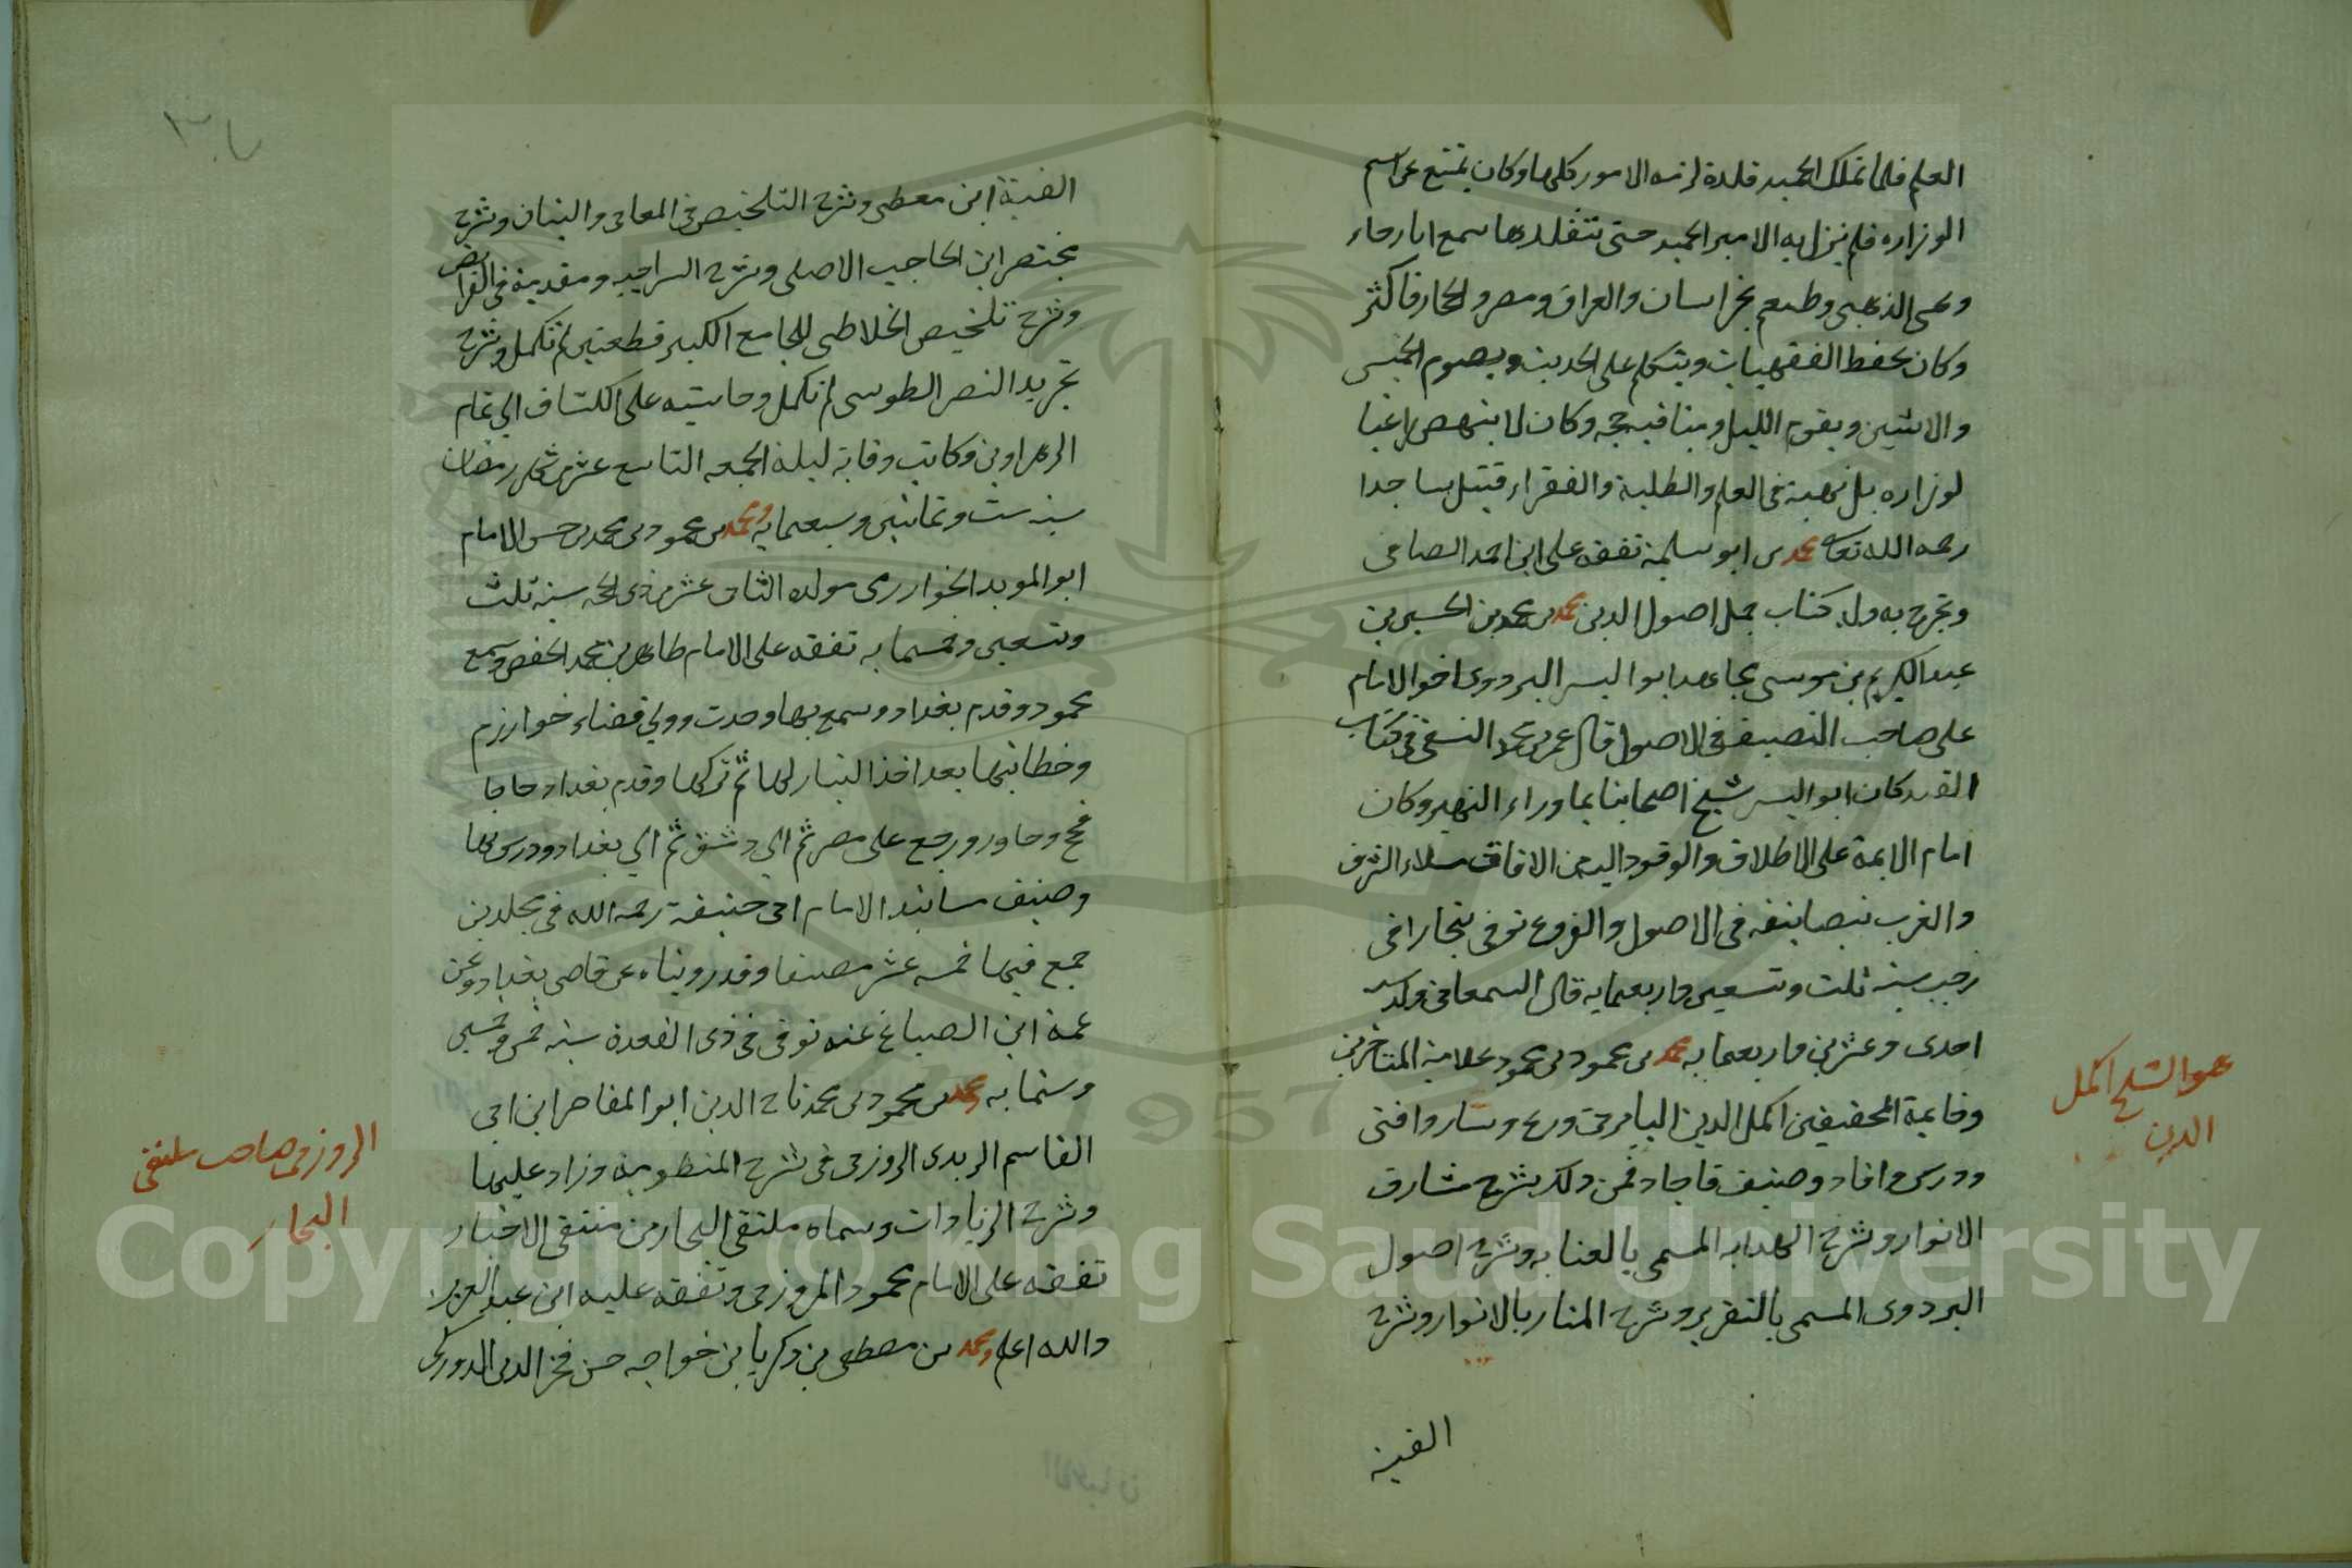 العلم فلما تملك الحميد قلده ازمة الامور كلها وكان يمتنع عن اسم
الوزاره فلم يزل به الامير الحميد حتى تقلدها سمع ابا رجاء
و الذهبى وطبقتهم بخراسان والعراق ومصر والحجاز فاكثر
وكان يحفظ الفقهيات ويتكلم على الحديث ويصوم الخميس
والاثنين ويقوم الليل ومناقبه جمه وكان لا ينهض راغبا
لوزاره بل نهمته فى العلم والطلبة والفقراء قتل ساجدا
رحمه الله تعالى محمد بن ابو سليمة تفقه على ابن احمد الصاعى
وتخرج به وله كتاب جمل اصول الدين محمد بن محمد بن الحسين بن
عبد الكريم بن موسى مجاهد ابو اليسر البزدوى اخو الامام
على صاحب التصنيف فى الاصول قال عمر بن محمد النسفى فى كتاب
القند كان ابو اليسر شيخ اصحابنا بما وراء النهر وكان
امام الايمة على الاطلاق والوفود اليه من الافاق ملاء الشرق
والغرب بتصانيفه فى الاصول والفروع توفى ببخارا فى
رجب سنة ثلث وتسعين واربعمايه قال السمعانى ولد سنه
احدى وعشرين واربعمايه محمد بن محمود بن محمود علامة المتاخرين
وخاتمة المحققين اكمل الدين البابرتى ورع وساد وافتى
ودرس وافاد وصنف فاجاد فمن ذلك شرح مشارق
الانوار وشرح الهدايه المسمى بالعنايه وشرح اصول
البزدوى المسمى بالتقرير وشرح المنار بالانوار وشرح
الفية
هو الشيخ اكمل
الدين
٣٠٧
الفية ابن معطى وشرح التلخيص فى المعانى والبيان وشرح
مختصر ابن الحاجب الاصلى وشرح السراجيه ومقدمة فى الفرائض
وشرح تلخيص الخلاطى للجامع الكبير قطعتين لم تكمل وشرح
تجريد النصر الطوسى لم تكمل وحاشيته على الكشاف الى تمام
الزهراوين وكانت وفاته ليلة الجمعه التاسع عشر من شهر رمضان
سنة ست وثمانين وسبعمايه ومحمد بن محمود بن محمد بن حسن الامام
ابو المويد الخوارزمى مولده الثانى عشر من ذى الحجه سنة ثلث
وتسعين وخمسمايه تفقه على الامام طاهر بن محمد الحفصى وسمع
محمود وقدم بغداد وسمع بها وحدث وولى قضاء خوارزم
وخطابتها بعد اخذ التتار لها ثم تركها وقدم بغداد حاجا
فحج وجاور ورجع على مصر ثم الى دمشق ثم الى بغداد ودرس بها
وصنف مسانيد الامام ابى حنيفة رحمه الله فى مجلدين
جمع فيها خمسه عشر مصنفا وقد رويناه عن قاضى بغداد وعن
عمه ابن الصباغ عنه توفى فى ذى القعدة سنة خمس وخمسين
وستمايه ومحمد بن محمود بن محمد تاج الدين ابو المفاخر ابن ابى
القاسم الزوزنى فى شرح المنظومة وزاد عليها
وشرح الزيادات وسماه ملتقى البحار من منتقى الاخبار
تفقه على الامام محمود المروزى وتفقه عليه ابن عبد العزيز
والله اعلم ومحمد بن مصطفى بن زكريا بن خواجه حسن فخر الدين الدوركى
الزوزنى صاحب ملتقى
البحار
Copyright © King Saud University
1957